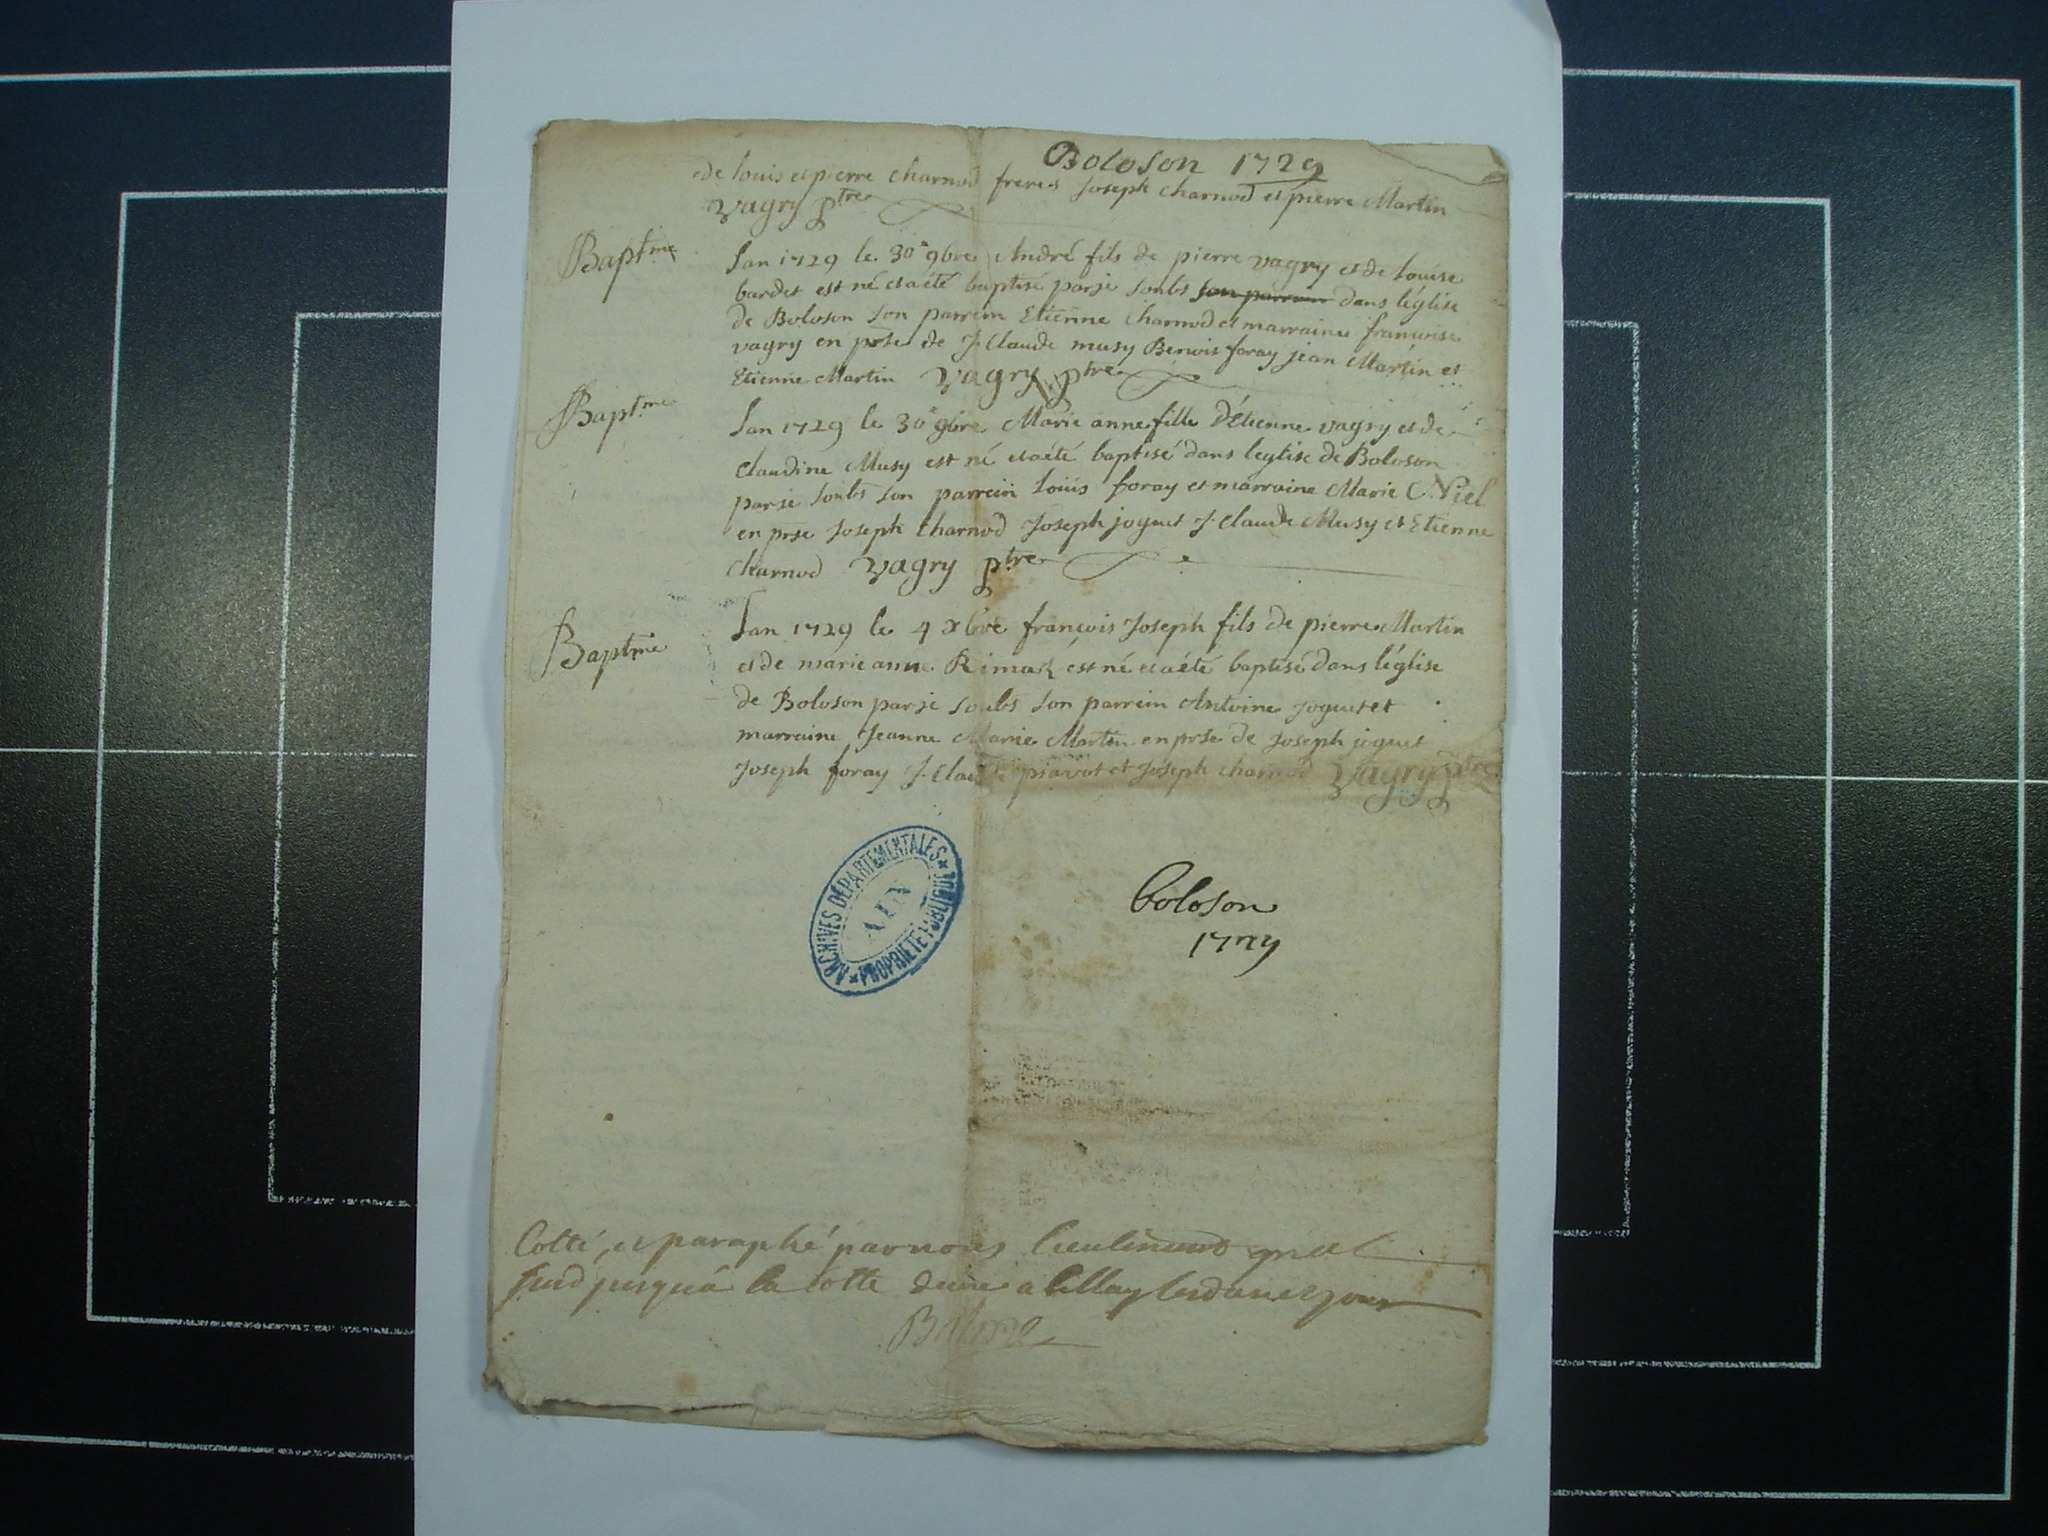 Boloson 1729
de louis et pierre charnod freres Joseph charnod et pierre Martin
vagry ptre
Baptme
Lan 1729 le 30e 9bre André fils de pierre vagry et de louise
bardet est né et a été baptisé par je soubs son parrain dans léglise
de Boloson son parrein Etienne Charnod et marraine francoise
vagry en prse de J. Claude musy Benoit foray jean Martin et
Etienne Martin vagry ptre
Baptme
Lan 1729 le 30e 9bre Marie anne fille d'Etienne vagry et de
Claudine Musy est né et a été baptisé dans leglise de Boloson
par je soubs son parrein loüis foray et marraine Marie Niel
en prse Joseph Charnod Joseph joguet J. Claude Musy et Etienne
charnod vagry ptre
Baptme
Lan 1729 le 4 xbre françois Joseph fils de pierre Martin
et de marie anne Rimaz est né et a été baptisé dans léglise
de Boloson par je soubs son parrein Antoine joguet et
marraine Jeanne Marie Martin en prse de Joseph joguet
Joseph foray J. Claude piavot et Joseph charnod vagry ptre
ARCHIVES DÉPARTEMENTALES
AIN
PROPRIÉTÉ PUBLIQUE
boloson
1729
Cotté, et paraphé par nous lieutenant gnal
jusquá la cotte a